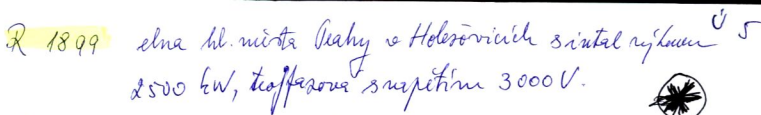 R 1899 elna hl. města Prahy v Holešovicích s instal výkonem Ú 5
2500 kW, trojfázová s napětím 3000 V.